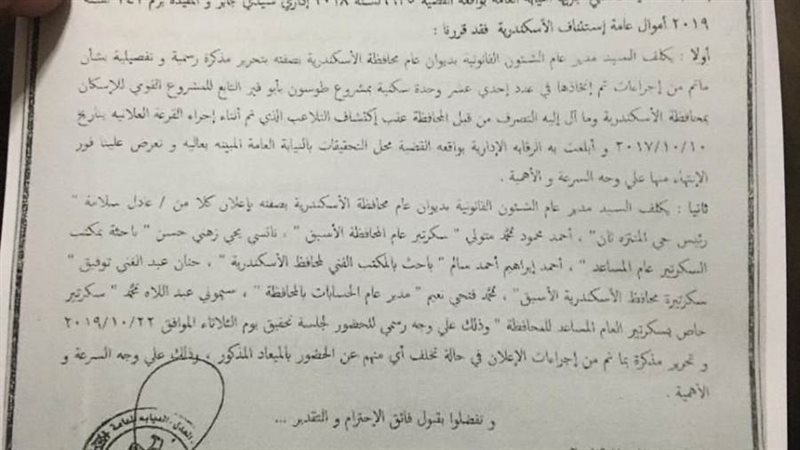 لسنة ٢٠١٨ إداري سيدي جابر و المقيدة برقم
٢٠١٩ أموال عامة إستئناف الأسكندرية فقد قررنا :
أولا : يكلف السيد مدير عام الشئون القانونية بديوان عام محافظة الأسكندرية بصفته بتحرير مذكرة رسمية و تفصيلية بشأن
ماتم من إجراءات تم إتخاذها في عدد إحدي عشر وحدة سكنية بمشروع طوسون بأبو قير التابع للمشروع القومي للإسكان
بمحافظة الأسكندرية وما آل إليه التصرف من قبل المحافظة عقب إكتشاف التلاعب الذي تم أثناء إجراء القرعة العلانيه بتاريخ
٢٠١٧/١٠/١٠ و أبلغت به الرقابه الإدارية بواقعه القضية محل التحقيقات بالنيابة العامة المبينه بعاليه و تعرض علينا فور
الإنتهاء منها علي وجه السرعة و الأهمية .
ثانيا : يكلف السيد مدير عام الشئون القانونية بديوان عام محافظة الأسكندرية بصفته بإعلان كلا من / عادل سلامة "
رئيس حي المنتزه ثان " ، أحمد محمود محمد متولي " سكرتير عام المحافظة الأسبق " ، نانسي يحي زهني حسن " باحثة بمكتب
السكرتير عام المساعد " ، أحمد إبراهيم أحمد سالم " باحث بالمكتب الفني لمحافظ الأسكندرية " ، حنان عبد الغني توفيق "
سكرتيرة محافظ الأسكندرية الأسبق " ، محمد فتحي نعيم " مدير عام الحسابات بالمحافظة " ، سيموني عبد اللاه محمد " سكرتير
خاص بسكرتير العام المساعد للمحافظة " وذلك علي وجه رسمي للحضور لجلسة تحقيق يوم الثلاثاء الموافق ٢٠١٩/١٠/٢٢
و تحرير مذكرة بما تم من إجراءات الإعلان في حالة تخلف أي منهم عن الحضور بالميعاد المذكور ، وذلك علي وجه السرعة و
الأهمية .
و تفضلوا بقبول فائق الإحترام و التقدير ...
العدل النيابة العامة